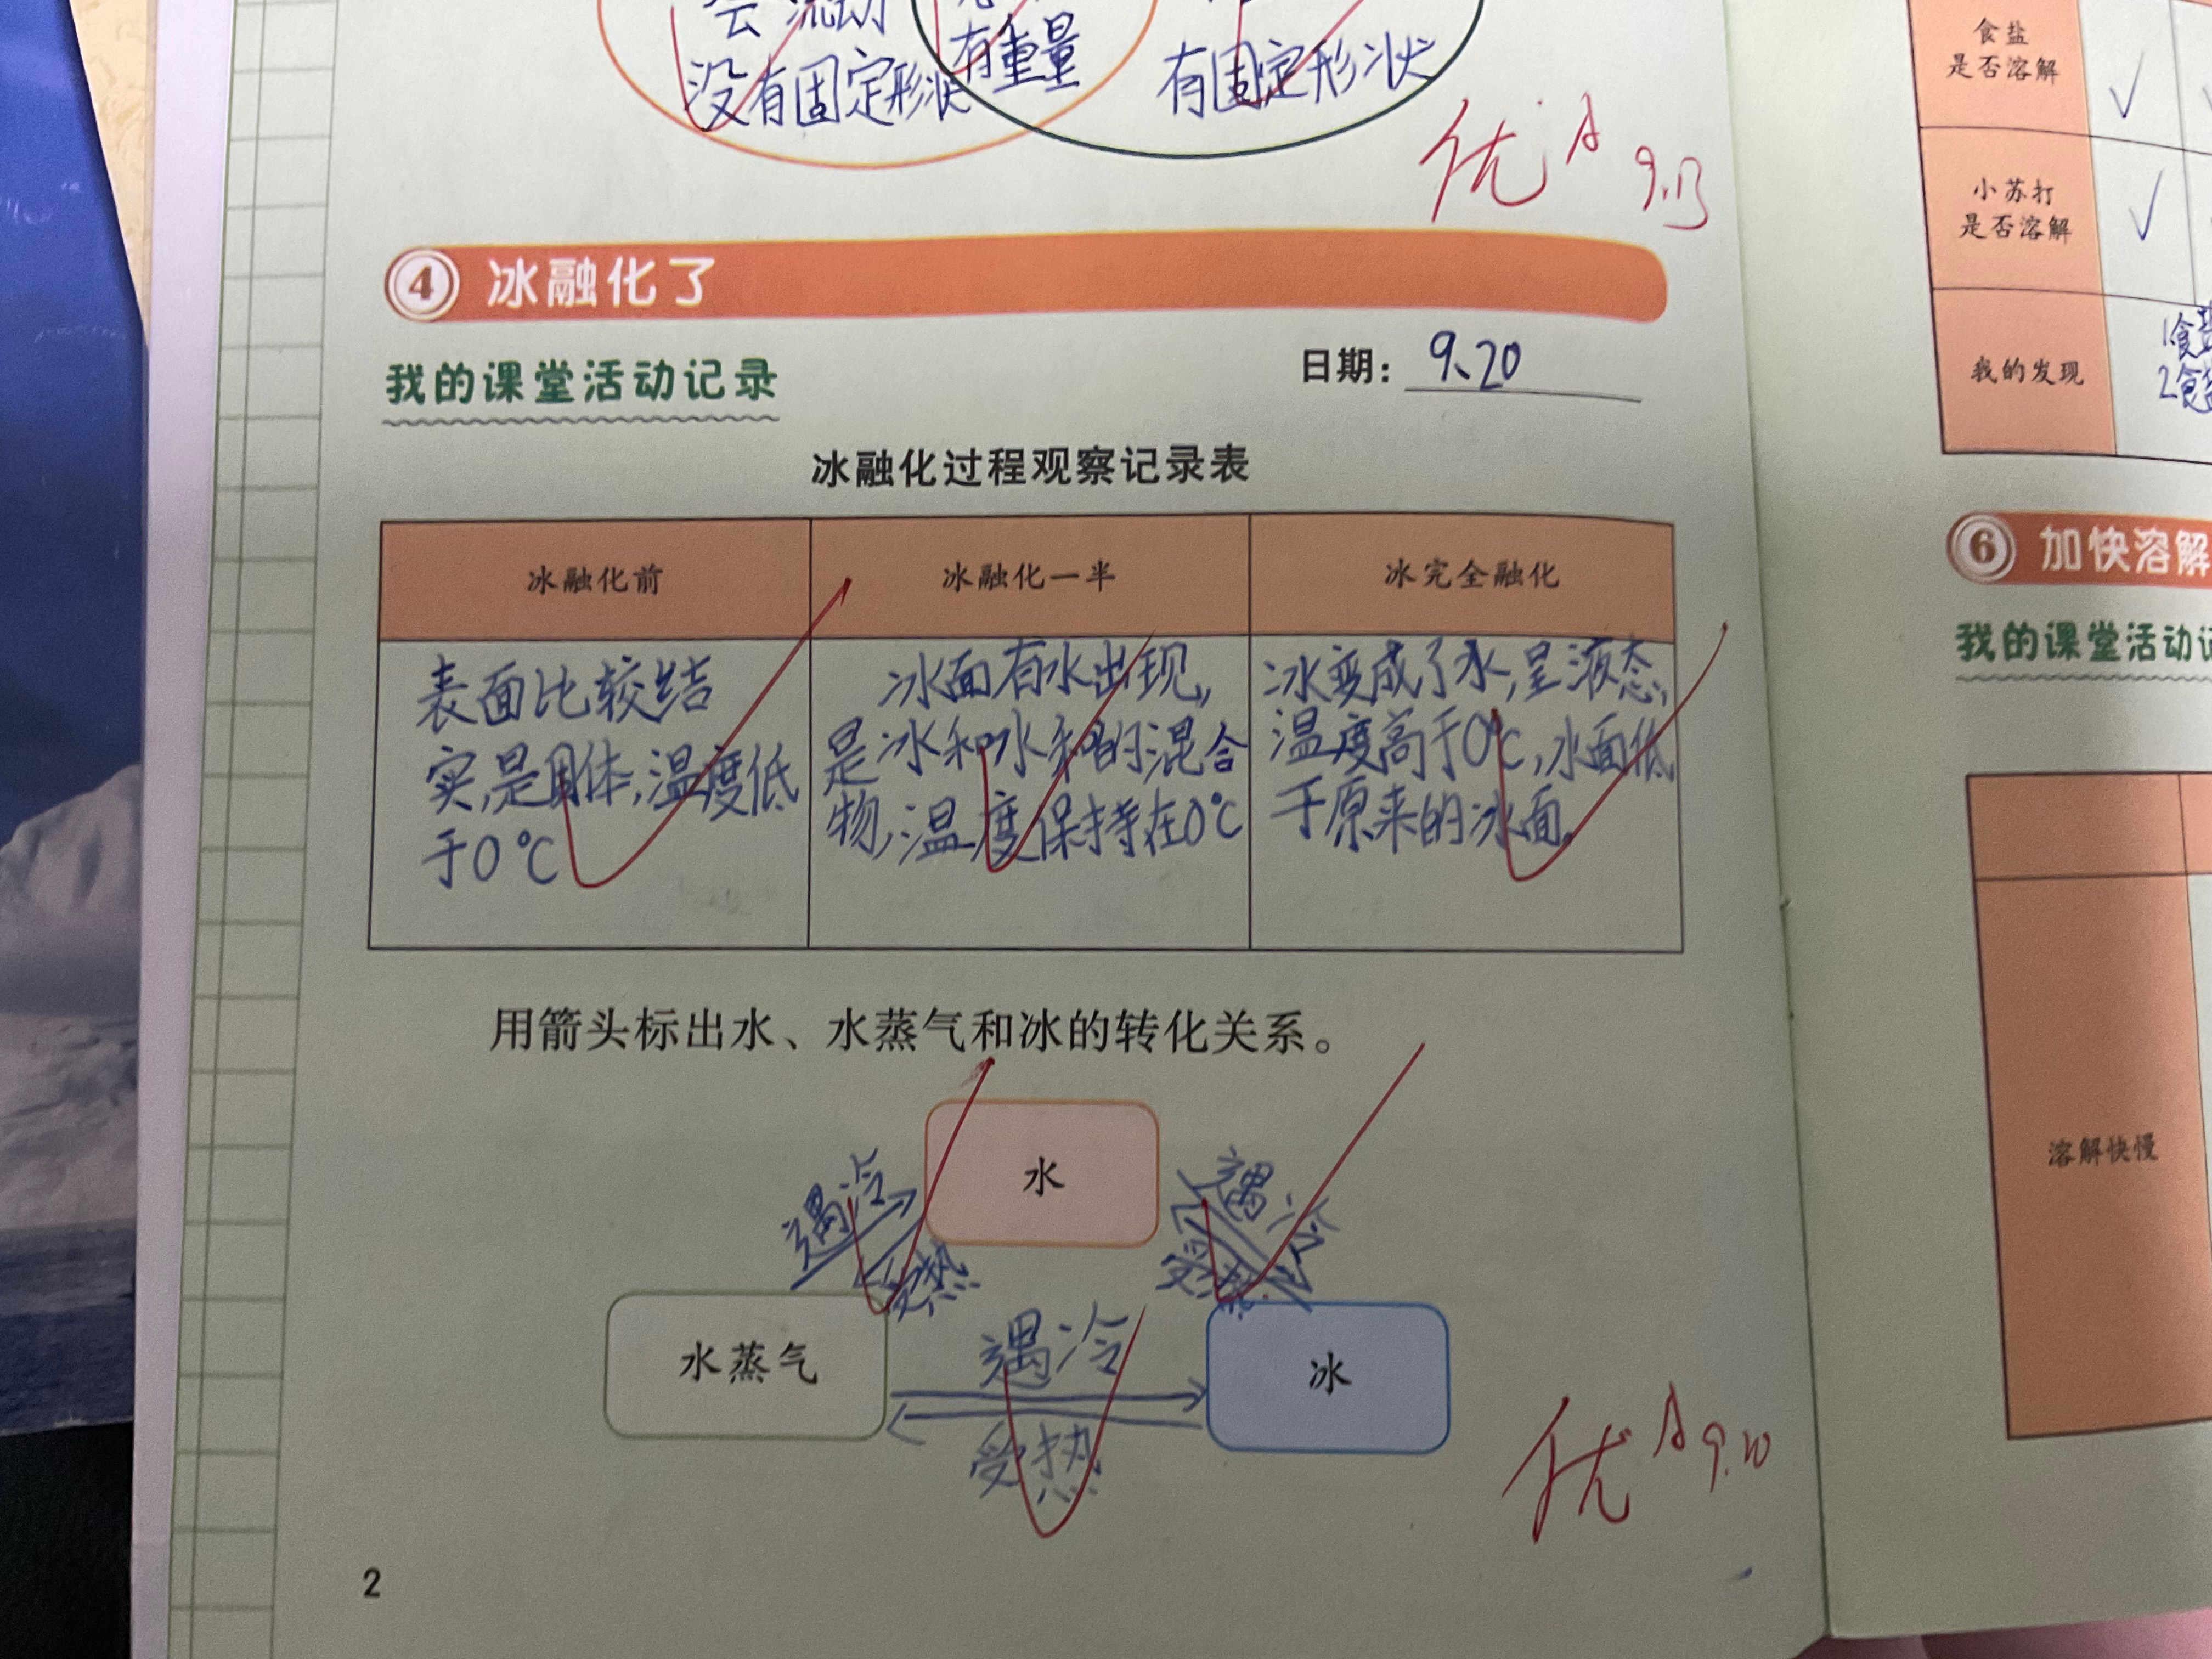 会流动
没有固定形状
有重量
有固定形状
优 A 9.13
④ 冰融化了
我的课堂活动记录
日期: 9、20
冰融化过程观察记录表
冰融化前
冰融化一半
冰完全融化
表面比较结
实,是固体,温度低
于0℃
冰面有水出现,
是冰和水和的混合
物,温度保持在0℃
冰变成了水,呈液态,
温度高于0℃,水面低
于原来的冰面。
用箭头标出水、水蒸气和冰的转化关系。
水
遇冷
受热
遇冷
受热
水蒸气
遇冷
受热
冰
优 A 9.20
2
食盐
是否溶解
✓
小苏打
是否溶解
✓
我的发现
1食盐
2食盐
⑥ 加快溶解
我的课堂活动记
溶解快慢